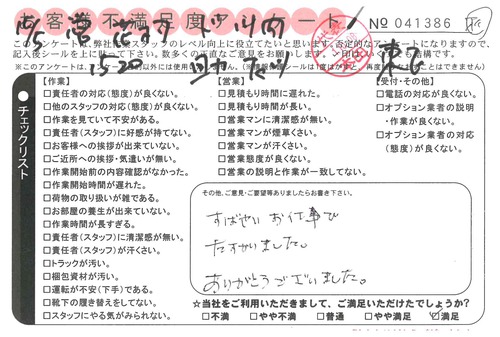 お客様不満足度アンケート
№ 041386
このアンケートは、弊社
スタッフのレベル向上に役立てたいと思います。否定的なアンケートになりますので、
15-20
【作業】
□責任者の対応(態度)が良くない。
□他のスタッフの対応(態度)が良くない。
□作業を見ていて不安がある。
□責任者(スタッフ)に好感が持てない。
□お客様への挨拶が出来ていない。
□ご近所への挨拶・気遣いが無い。
□作業開始前の内容確認がなかった。
□作業開始時間が遅れた。
□荷物の取り扱いが雑である。
□お部屋の養生が出来ていない。
□作業時間が長すぎる。
□責任者(スタッフ)に清潔感が無い。
□責任者(スタッフ)が汗くさい。
□トラックが汚い。
□梱包資材が汚い。
□運転が不安(下手)である。
□靴下の履き替えをしてない。
□スタッフにやる気がみられない。
【営業】
□見積もり時間に遅れた。
□見積もり時間が長い。
□営業マンに清潔感が無い。
□営業マンが煙草くさい。
□営業マンが汗くさい。
□営業態度が良くない。
□営業の説明と作業が一致してない。
【受付・その他】
□電話の対応が良くない。
□オプション業者の説明
・作業が良くない。
□オプション業者の対応
(態度)が良くない。
チェックリスト
その他、ご意見・ご要望等ありましたらお書き下さい。
すばやいお仕事で
たすかりました。
ありがとうございました。
☆当社をご利用いただきまして、ご満足いただけたでしょうか?
□不満 □やや不満 □普通 □やや満足 ☑満足